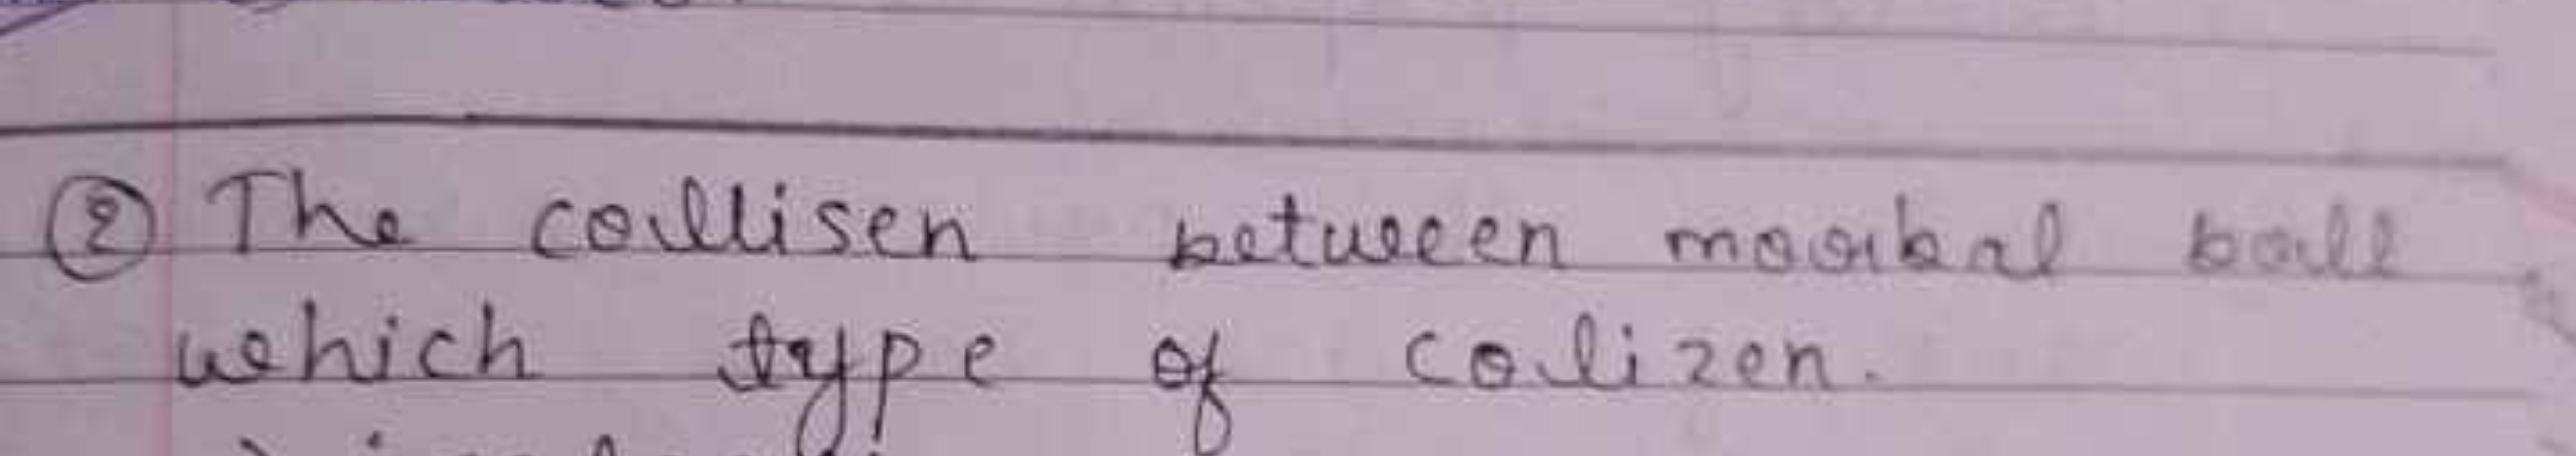 ② The collisen between maarbal ball
which type of colizen.